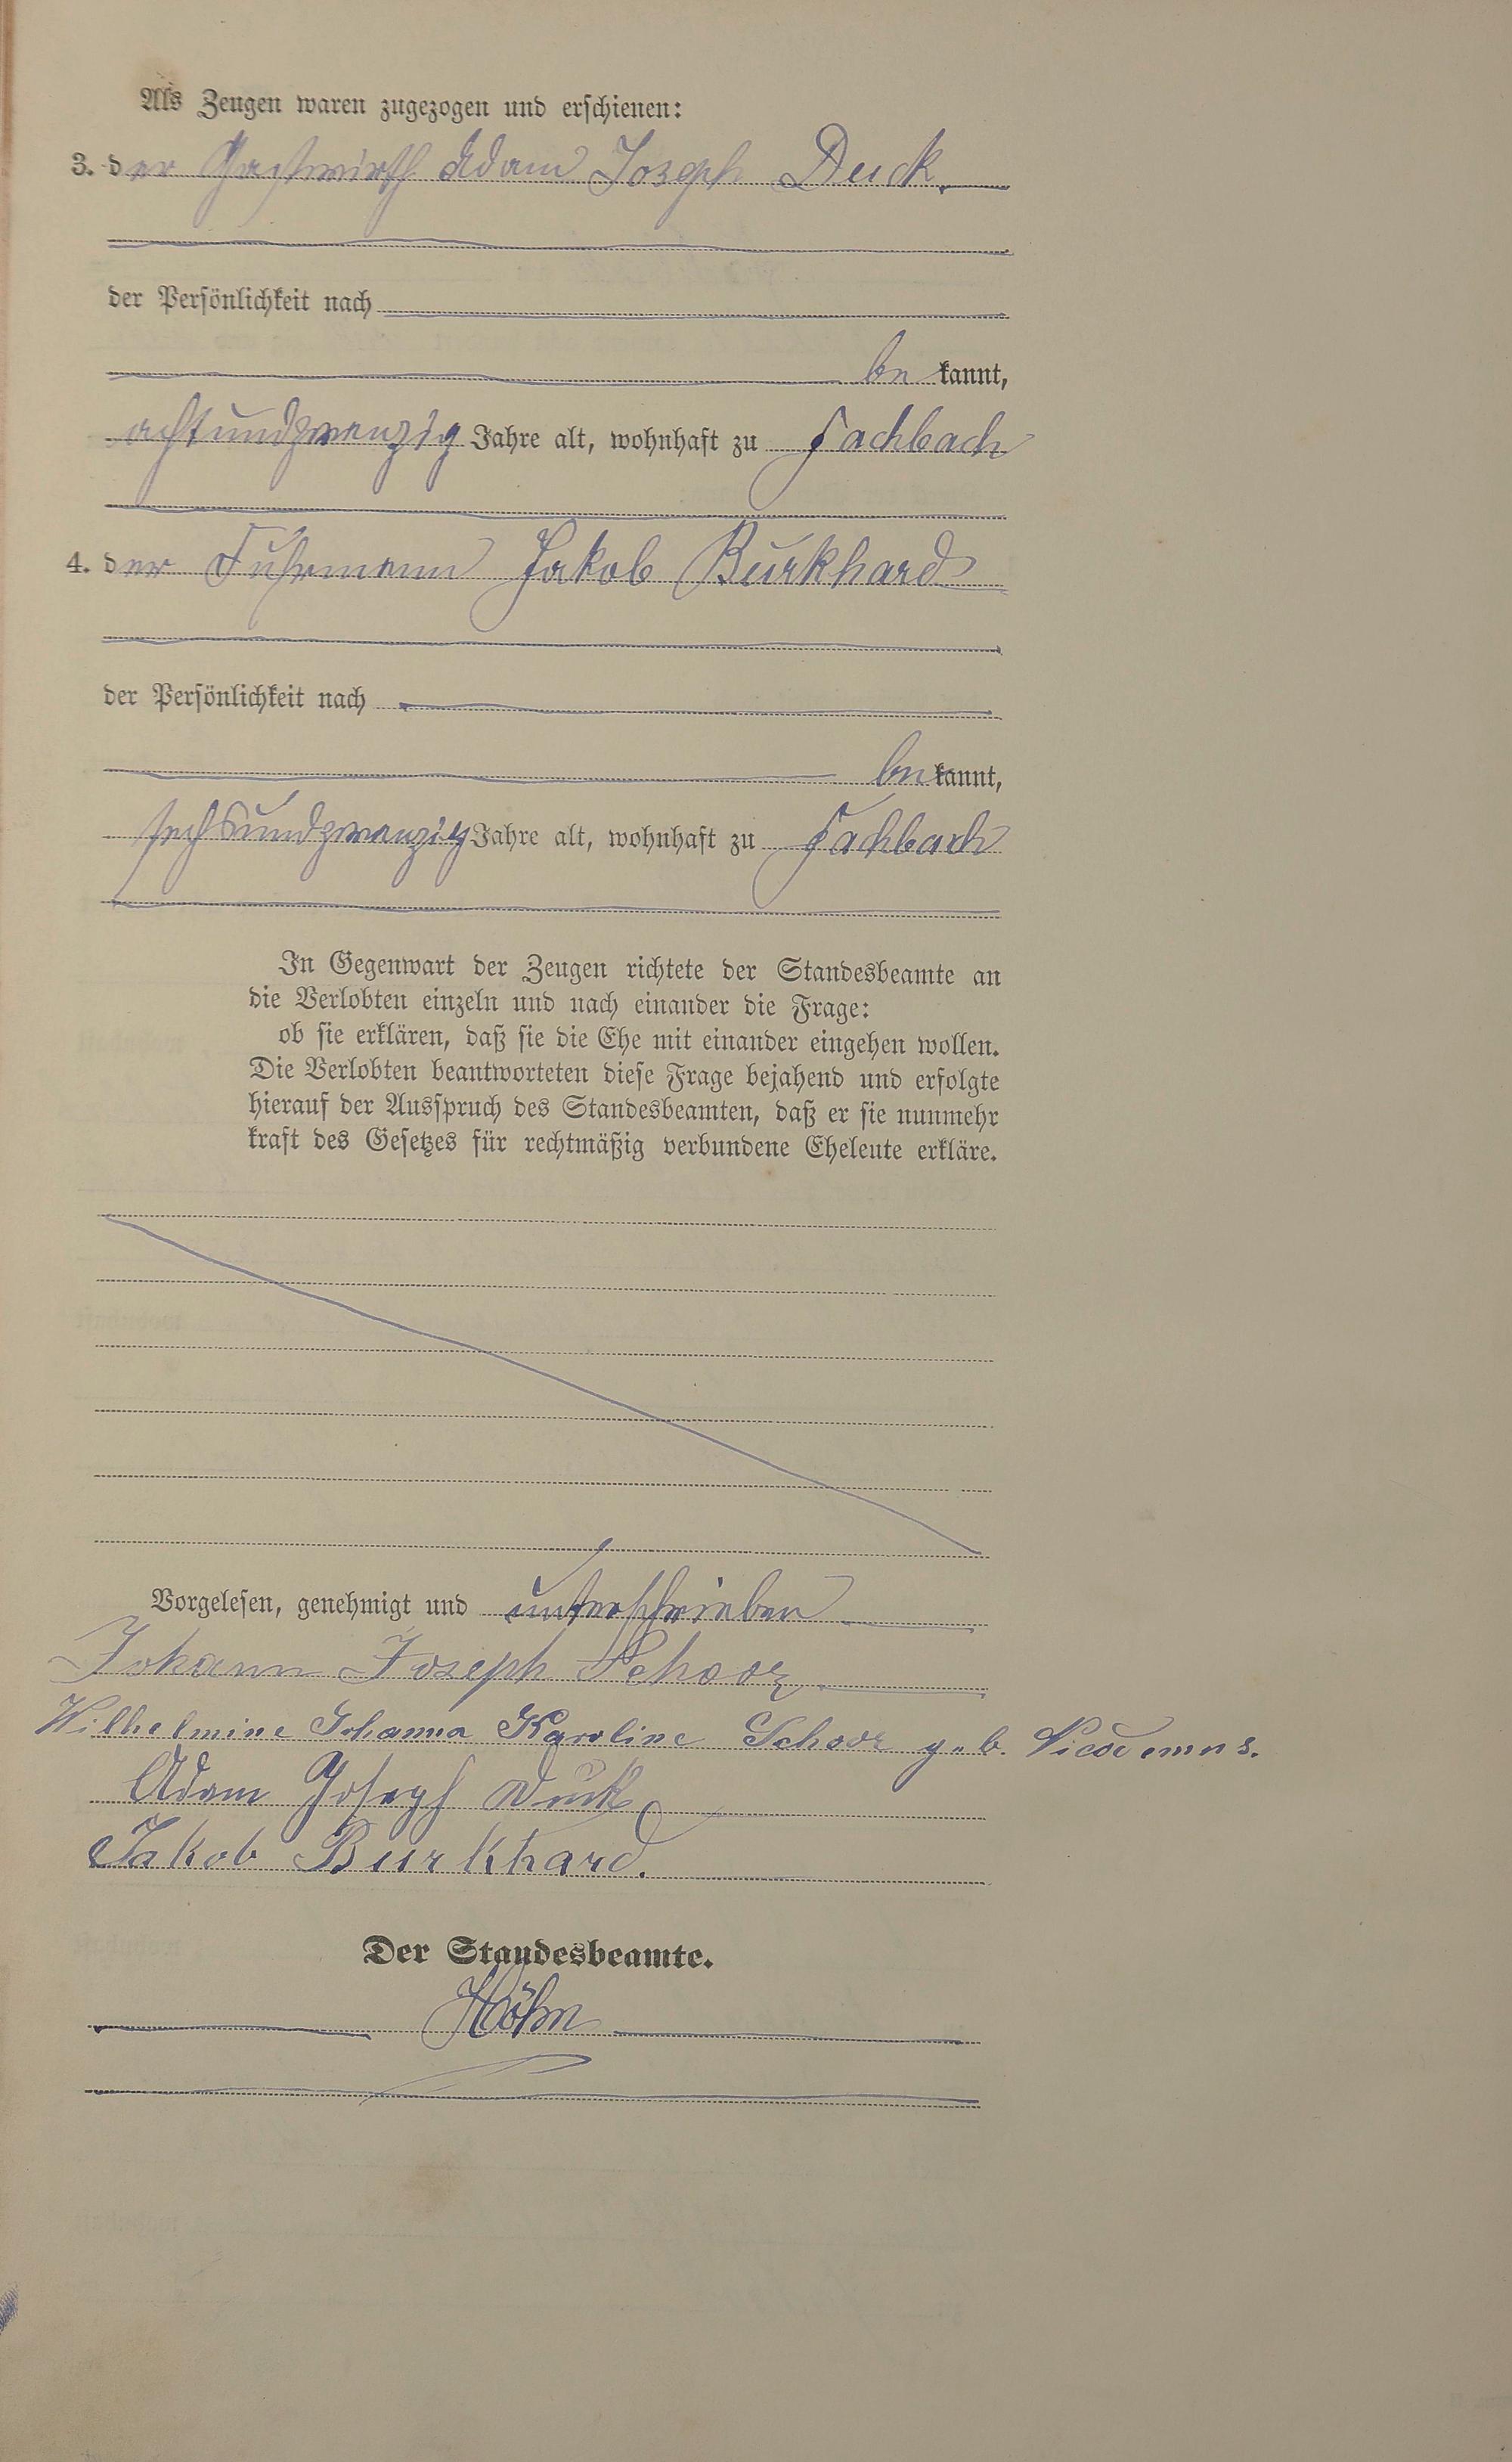 Als Zeugen waren zugezogen und erschienen:
3. der Gastwirth Adam Joseph Duck.
der Persönlichkeit nach
bekannt,
achtundzwanzig Jahre alt, wohnhaft zu Fachbach
4. der Fuhrmann Jakob Burkhard
der Persönlichkeit nach
bekannt,
sechsundzwanzig Jahre alt, wohnhaft zu Fachbach
In Gegenwart der Zeugen richtete der Standesbeamte an
die Verlobten einzeln und nach einander die Frage:
ob sie erklären, daß sie die Ehe mit einander eingehen wollen.
Die Verlobten beantworteten diese Frage bejahend und erfolgte
hierauf der Ausspruch des Standesbeamten, daß er sie nunmehr
kraft des Gesetzes für rechtmäßig verbundene Eheleute erkläre.
Vorgelesen, genehmigt und unterschrieben
Johann Joseph Schoor
Wilhelmine Johanna Karoline Schoor geb. Nicodemus.
Adam Joseph Duck
Jakob Burkhard.
Der Standesbeamte.
Höhn